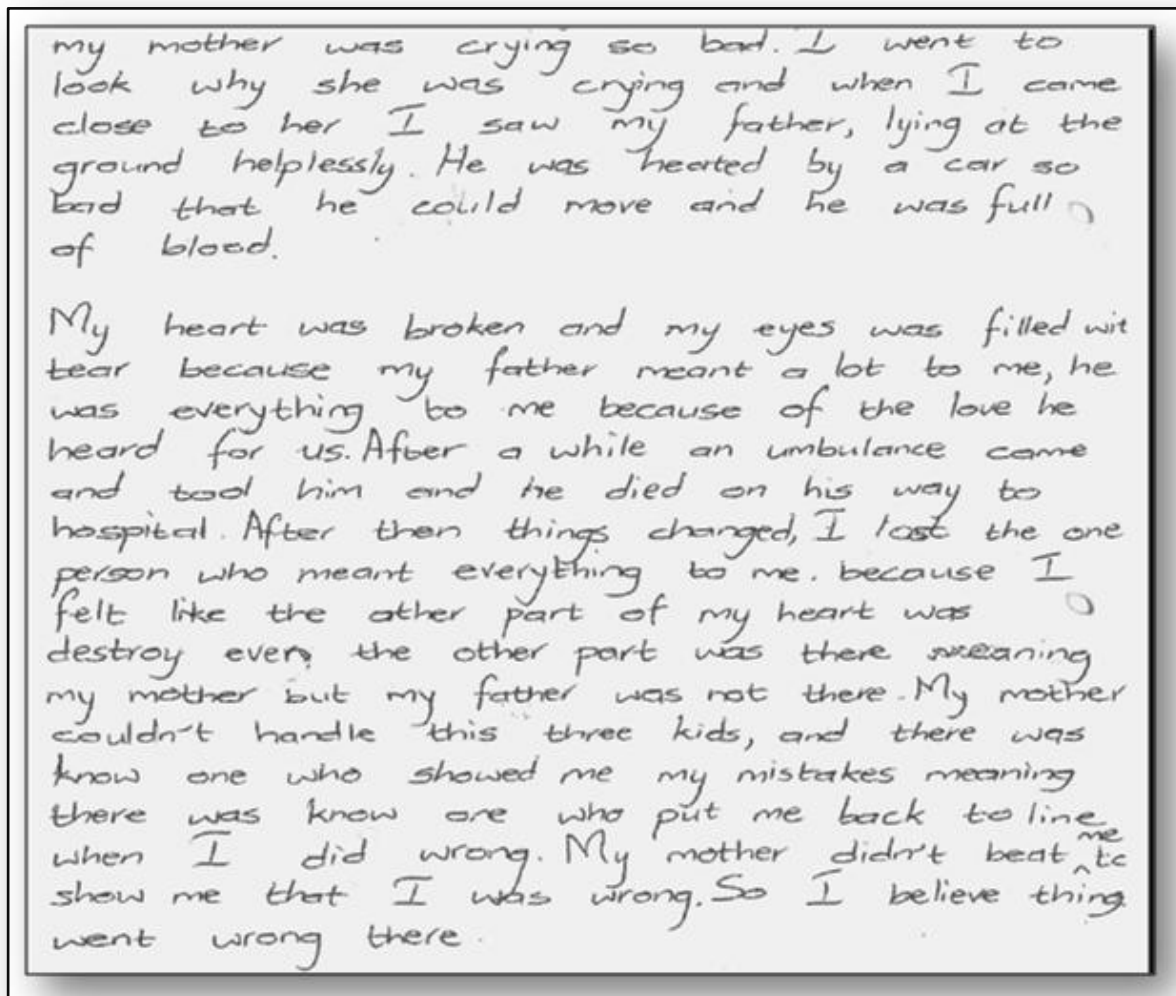 my mother was crying so bad. I went to
look why she was crying and when I came
close to her I saw my father, lying at the
ground helplessly. He was heated by a car so
bad that he could move and he was full
of blood.
My heart was broken and my eyes was filled wit
tear because my father meant a lot to me, he
was everything to me because of the love he
heard for us. After a while an umbulance came
and tool him and he died on his way to
hospital. After then things changed, I lost the one
person who meant everything to me. because I
felt like the other part of my heart was
destroy even the other part was there meaning
my mother but my father was not there. My mother
couldn't handle this three kids, and there was
know one who showed me my mistakes meaning
there was know one who put me back to line
when I did wrong. My mother didn't beat me to
show me that I was wrong. So I believe thing
went wrong there.